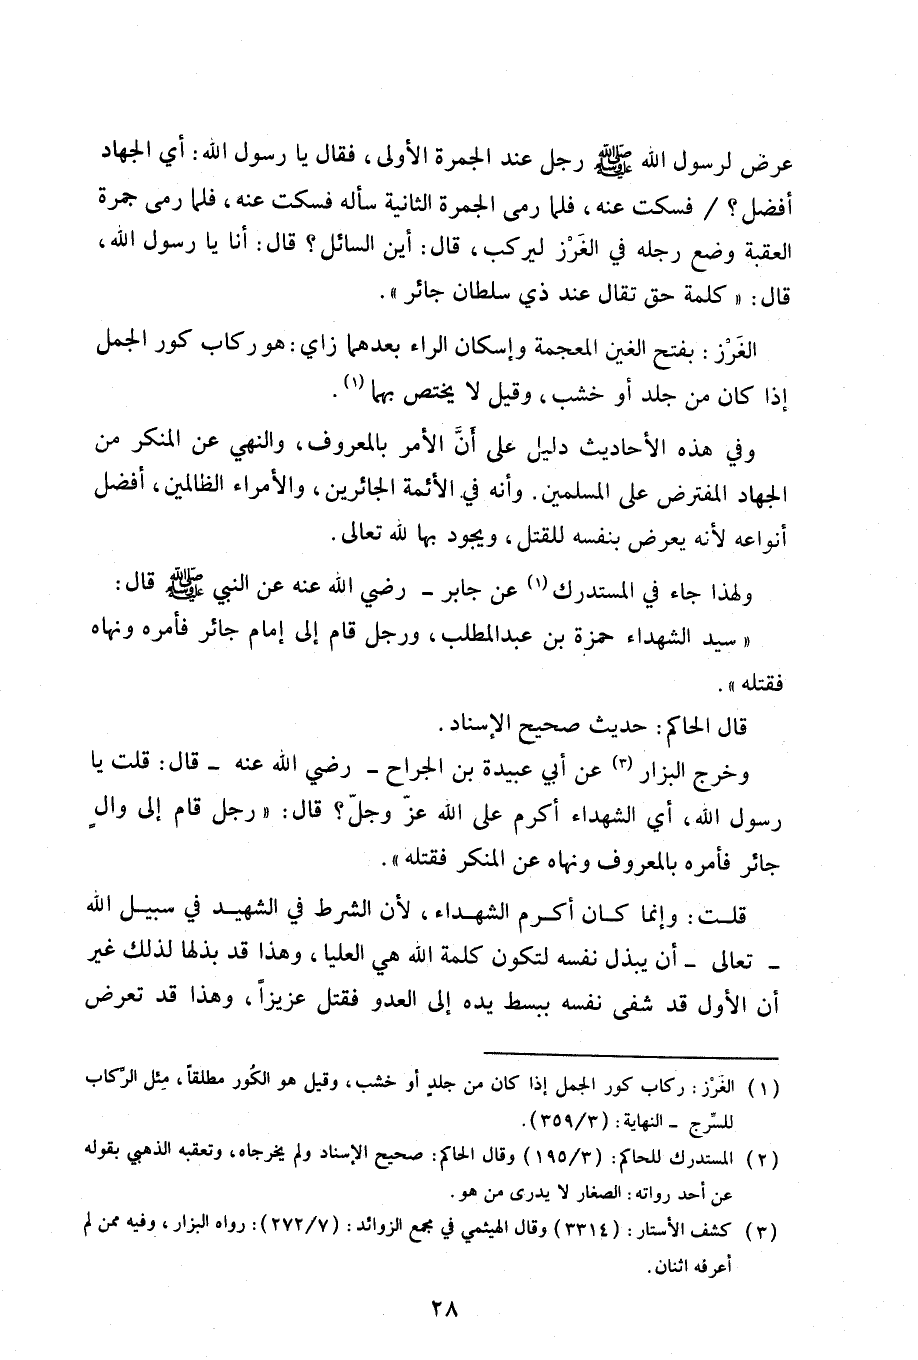 عرض لرسول الله ﷺ رجل عند الجمرة الأولى، فقال يا رسول الله: أي الجهاد
أفضل؟ / فسكت عنه، فلما رمى الجمرة الثانية سأله فسكت عنه، فلما رمى جمرة
العقبة وضع رجله في الغَرْز ليركب، قال: أين السائل؟ قال: أنا يا رسول الله،
قال: « كلمة حق تقال عند ذي سلطان جائر ».
الغَرْز: بفتح الغين المعجمة وإسكان الراء بعدهما زاي: هو ركاب كور الجمل
إذا كان من جلد أو خشب، وقيل لا يختص بهما (١).
وفي هذه الأحاديث دليل على أَنَّ الأمر بالمعروف، والنهي عن المنكر من
الجهاد المفترض على المسلمين. وأنه في الأئمة الجائرين، والأمراء الظالمين، أفضل
أنواعه لأنه يعرض بنفسه للقتل، ويجود بها لله تعالى.
ولهذا جاء في المستدرك (١) عن جابر - رضي الله عنه عن النبي ﷺ قال:
« سيد الشهداء حمزة بن عبدالمطلب، ورجل قام إلى إمام جائر فأمره ونهاه
فقتله ».
قال الحاكم: حديث صحيح الإسناد.
وخرج البزار (٣) عن أبي عبيدة بن الجراح - رضي الله عنه - قال: قلت يا
رسول الله، أي الشهداء أكرم على الله عزّ وجلّ؟ قال: « رجل قام إلى والٍ
جائر فأمره بالمعروف ونهاه عن المنكر فقتله ».
قلت: وإنما كان أكرم الشهداء، لأن الشرط في الشهيد في سبيل الله
- تعالى - أن يبذل نفسه لتكون كلمة الله هي العليا، وهذا قد بذلها لذلك غير
أن الأول قد شفى نفسه ببسط يده إلى العدو فقتل عزيزاً، وهذا قد تعرض
(١) الغَرْز: ركاب كور الجمل إذا كان من جلدٍ أو خشب، وقيل هو الكُور مطلقاً، مِثل الرِّكاب
للسِّرج - النهاية: (٣٥٩/٣).
(٢) المستدرك للحاكم: (١٩٥/٣) وقال الحاكم: صحيح الإسناد ولم يخرجاه، وتعقبه الذهبي بقوله
عن أحد رواته: الصغار لا يدرى من هو.
(٣) كشف الأستار: (٣٣١٤) وقال الهيثمي في مجمع الزوائد: (٢٧٢/٧): رواه البزار، وفيه ممن لم
أعرفه اثنان.
٢٨